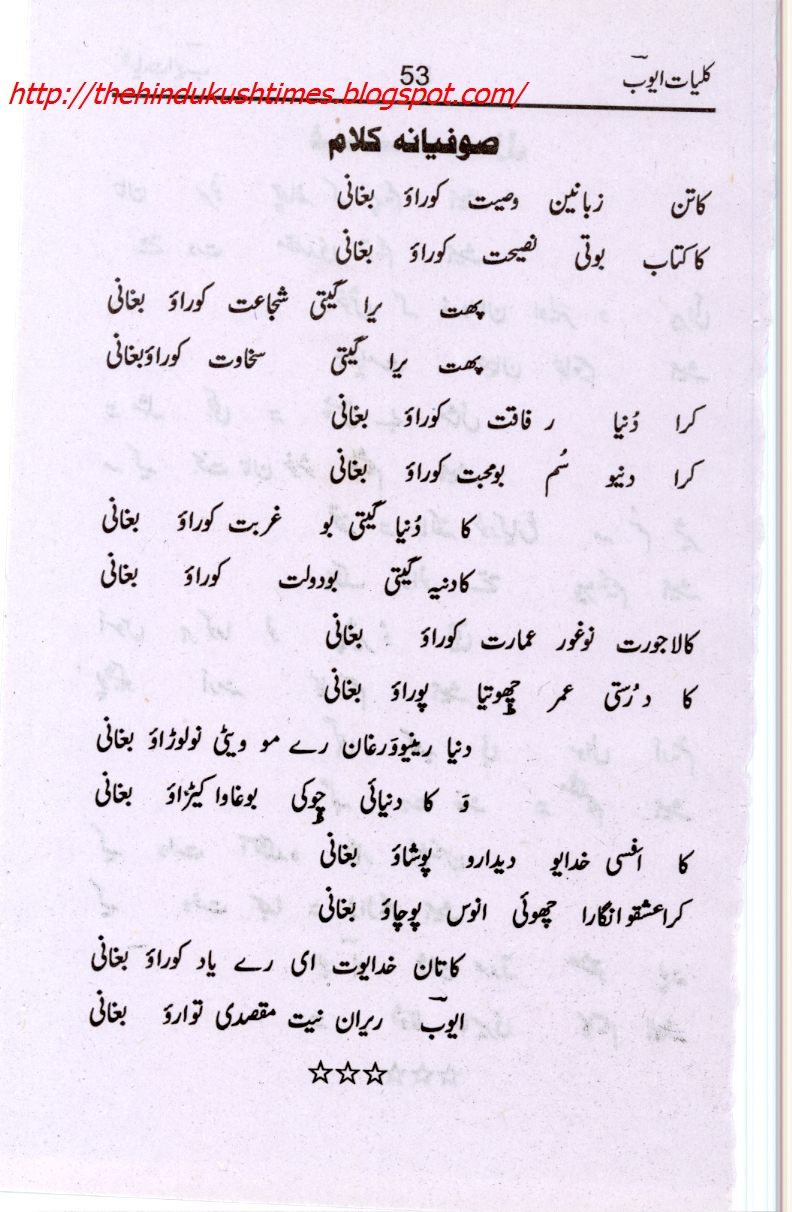 کلیات ایوبؔ
53
http://thehindukushtimes.blogspot.com/
صوفیانہ کلام
کاتن زبانین وصیت کوراؤ بغانی
کا کتاب بوتی نصیحت کوراؤ بغانی
پھت یرا گیتی شجاعت کوراؤ بغانی
پھت یرا گیتی سخاوت کوراؤ بغانی
کرا دُنیا ر فاقت کوراؤ بغانی
کرا دنیو سُم بومحبت کوراؤ بغانی
کا دُنیا گیتی بو غربت کوراؤ بغانی
کا دنیہ گیتی بودولت کوراؤ بغانی
کالاجورت نوغور عمارت کوراؤ بغانی
کا درُستی عمر چھوتیا پوراؤ بغانی
دنیا رینیوورغان رے مو ویٹی نولوڑاؤ بغانی
وَ کا دنیائی چوکی بوغاوا کیڑاؤ بغانی
کا اغسی خدایو دیدارو پوشاؤ بغانی
کرا عشقو انگارا چھوئی انوس پوچاؤ بغانی
کا تان خدایوت ای رے یاد کوراؤ بغانی
ایوبؔ ریران نیت مقصدی توارؤ بغانی
☆☆☆